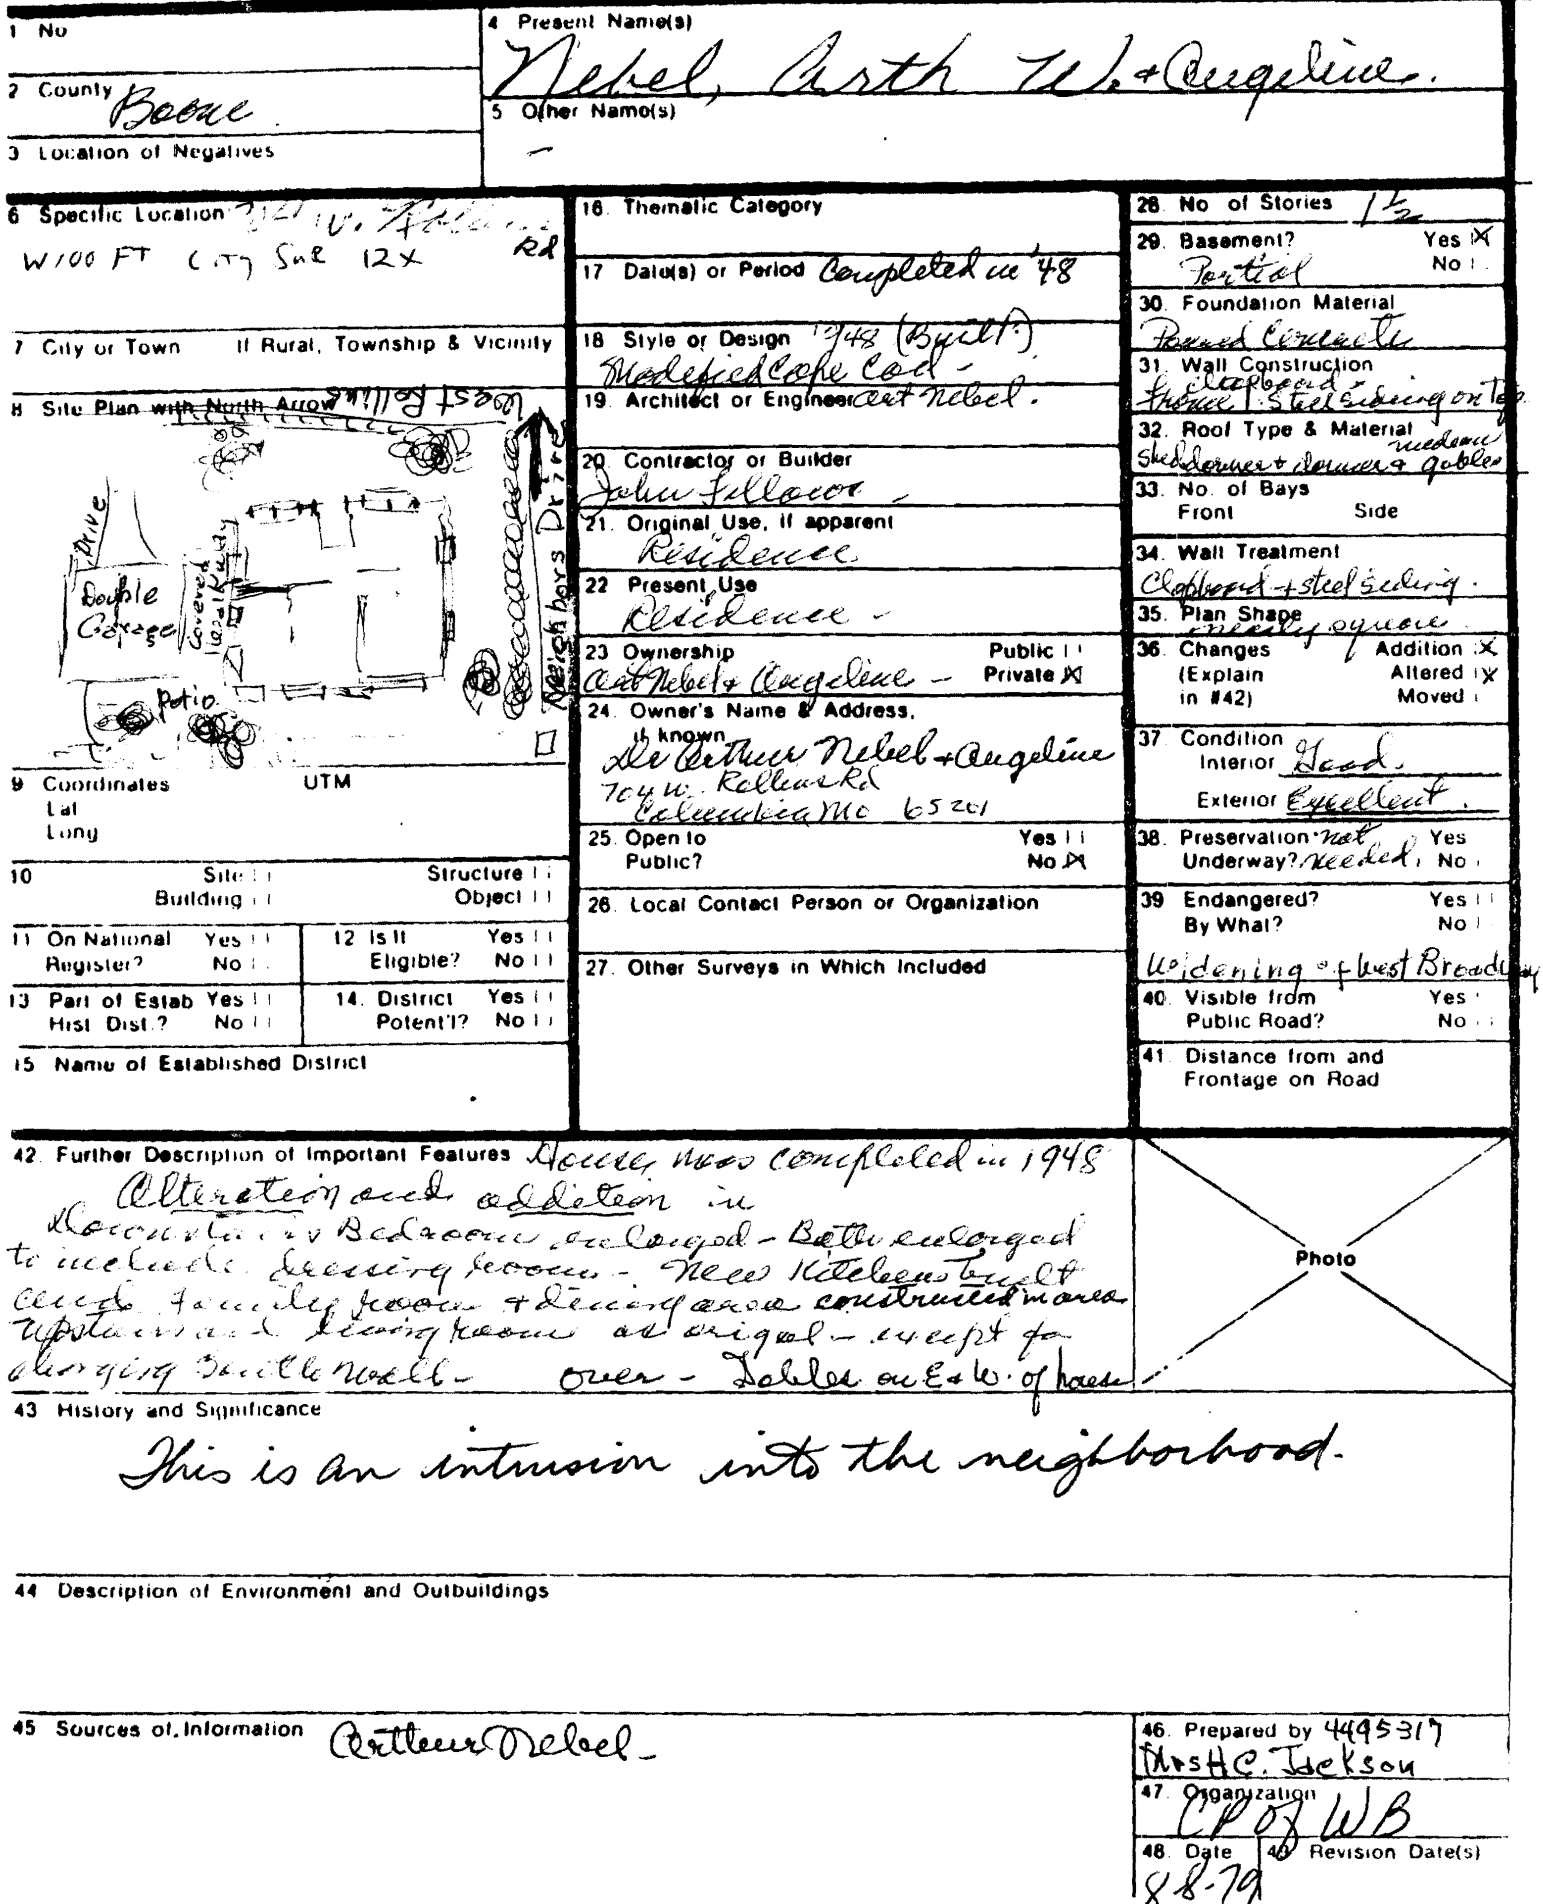 1 No
2 County Boone
3 Location of Negatives
4 Present Name(s)
Nebel, Arth W. + Angeline.
5 Other Name(s)
-
6 Specific Location W. Rollins
Rd
W100 FT City SuR 12X
7 City or Town If Rural, Township & Vicinity
8 Site Plan with North Arrow
West Rollins
Drive
Double
Garage
Covered
Walkway
Patio
Neighbors Drive
9 Coordinates UTM
Lat
Long
10 Site Structure
Building Object
11 On National Register? Yes No
12 Is It Eligible? Yes No
13 Part of Estab Hist Dist.? Yes No
14. District Potent'l? Yes No
15 Name of Established District
16. Thematic Category
17 Date(s) or Period Completed in '48
18 Style or Design /48 (Built)
Modified Cape Cod -
19. Architect or Engineer Art Nebel.
20. Contractor or Builder
John Fellows -
21. Original Use, if apparent
Residence
22 Present Use
Residence -
23 Ownership Public
Art Nebel + Angeline - Private X
24. Owner's Name & Address,
if known
Dr Arthur Nebel + Angeline
704 W. Rollins Rd
Columbia Mo 65201
25. Open to Yes
Public? No X
26. Local Contact Person or Organization
27. Other Surveys in Which Included
28. No of Stories 1 1/2
29. Basement? Yes X
Partial No
30. Foundation Material
Poured Concrete
31. Wall Construction
clapboard -
frame Steel siding on top
32. Roof Type & Material medium
Shed dormer + dormer + gables
33. No. of Bays
Front Side
34. Wall Treatment
Clapboard + steel siding.
35. Plan Shape
nearly square
36. Changes Addition X
(Explain Altered X
in #42) Moved
37 Condition
Interior Good.
Exterior Excellent.
38. Preservation not Yes
Underway? needed. No
39 Endangered? Yes
By What? No
Widening of West Broadway
40. Visible from Yes
Public Road? No
41. Distance from and
Frontage on Road
42. Further Description of Important Features House was completed in 1948
Alteration and addition in
Downstairs Bedroom enlarged - Bath enlarged
to include dressing room - New Kitchen built
and family room + dining area constructed in area
Upstairs and living room as origal - except for
changing South wall - over - Gables on E & W. of house
Photo
43 History and Significance
This is an intrusion into the neighborhood.
44 Description of Environment and Outbuildings
45 Sources of Information Arthur Nebel -
46. Prepared by 4495317
Mrs H C. Jackson
47. Organization
CP of WB
48. Date 49 Revision Date(s)
8-8-79